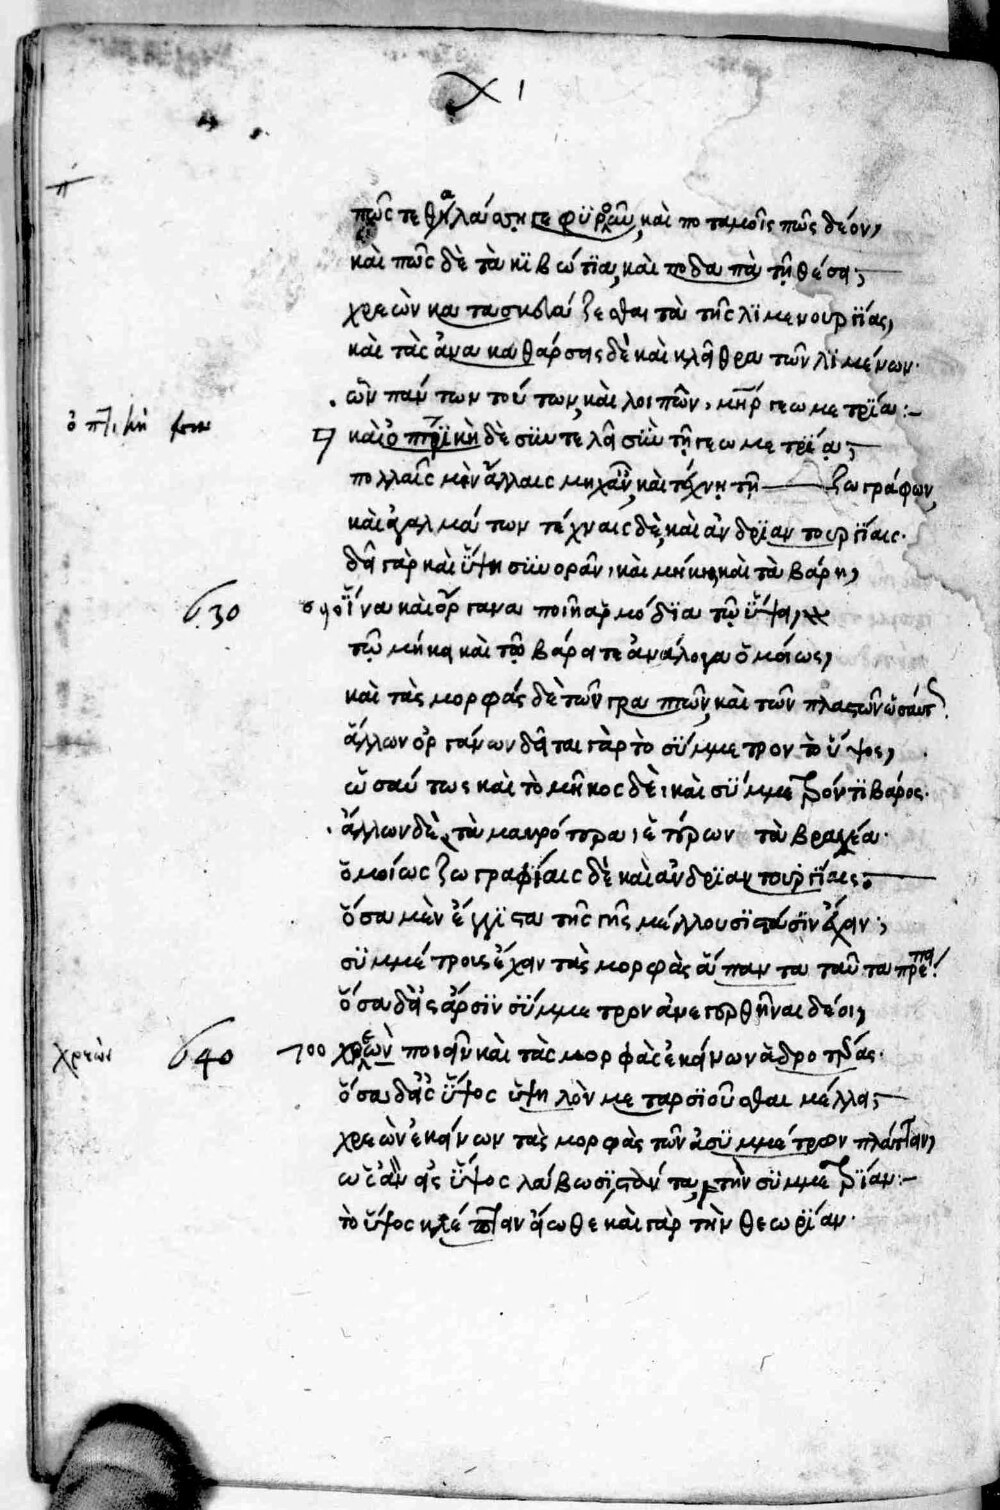 χ 1
πῶς τε θαλάσσῃ γεφυροῦν, καὶ ποταμοῖς πῶς δέον,
καὶ πῶς δὲ τὰ κϊβώτϊα, καὶ ποδαπὰ τῇ θέσει;
χρεὼν κατασκευάζεσθαι τὰ τῆς λϊμενουργίας,
καὶ τὰς ἀνακαθάρσεις δὲ καὶ κλεῖθρα τῶν λϊμένων.
ὧν πάντων τούτων, καὶ λοιπῶν, μήτηρ γεωμετρϊα:
ὀπτικὴ
καὶ ὀπτϊκὴ δὲ σϋντελεῖ σϋν τῇ γεωμετρϊᾳ;
πολλαῖς μὲν ἄλλαις μηχαναῖς, καὶ τέχνῃ τῇ ζωγράφων,
καὶ ἀγαλμάτων τέχναις δὲ, καὶ ἀνδρϊαντουργίαις.
δεῖ γὰρ καὶ ὕψη σϋνορᾶν, καὶ μήκη, καὶ τὰ βάρη,
630
ἵνα καὶ ὄργανα ποιῇ ἁρμόδϊα τῷ ὕψει,
τῷ μήκει καὶ τῷ βάρει τε ἀνάλογα ὁμοίως,
καὶ τὰς μορφάς δὲ τῶν γραπτῶν, καὶ τῶν πλαστῶν ὡσαύτως.
ἄλλων ὀργάνων δεῖται γὰρ τὸ σϋμμετρον τὸ ὕψος,
ὡσαύτως καὶ τὸ μῆκος δὲ, καὶ σϋμμετροῦντϊ βάρος.
ἄλλων δὲ, τὰ μακρότερα, ἑτέρων τὰ βραχέα.
ὁμοίως ζωγραφίαις δὲ καὶ ἀνδρϊαντουργίαις;
ὅσα μὲν ἔγγϊστα τῆς γῆς μέλλουσϊ στάσϊν ἔχειν;
σϋμμέτρους ἔχειν τὰς μορφὰς ἅπαντα ταῦτα πρέπει.
ὅσα δ' εἰς ἄρσϊν σϋμμετρον ἀνεγερθῆναι δέοι,
χρεὼν
640
700 χρεὼν ποιεῖν καὶ τὰς μορφὰς ἐκείνων ἁδροτέρας.
ὅσα δ' εἰς ὕψος ὑψηλὸν μεταρσϊοῦσθαι μέλλει;
χρεὼν ἐκείνων τὰς μορφὰς τῶν ἀσϋμμέτρων πλάττειν,
ὡς ἂν εἰς ὕψος λάβωσι, τὴν σϋμμετρϊαν:
τὸ ὕψος κλέπτειν εἴωθε καὶ γὰρ τὴν θεωρϊαν.